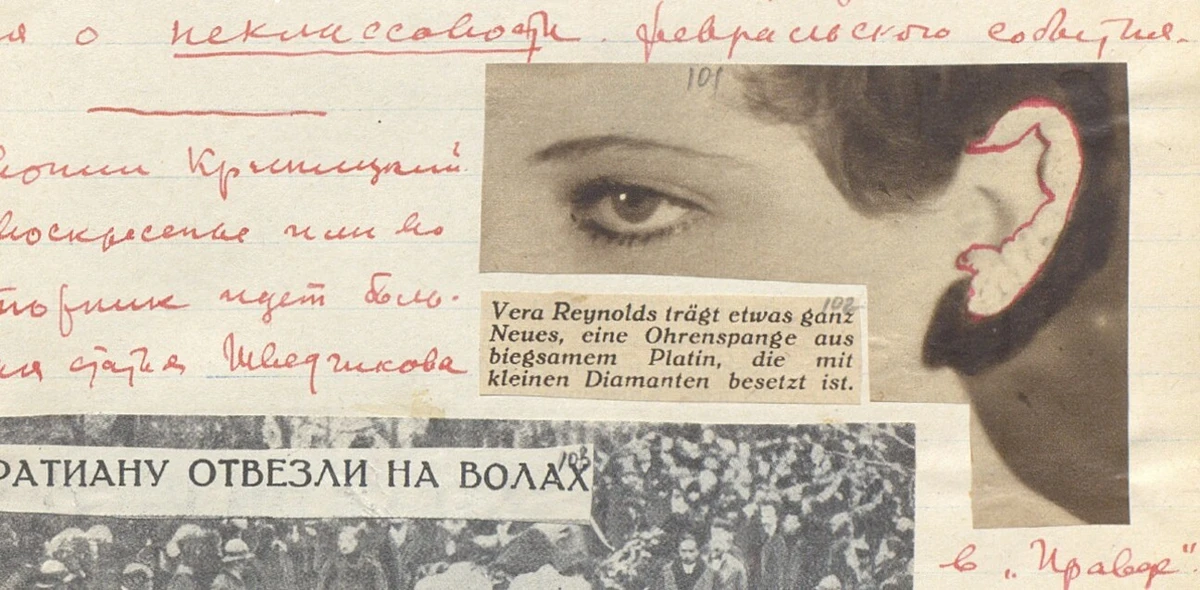 я о неклассовости февральского события.
101
Крыницкий
воскресенье или во
идет боль-
статья Шведчикова
102
Vera Reynolds trägt etwas ganz
Neues, eine Ohrenspange aus
biegsamem Platin, die mit
kleinen Diamanten besetzt ist.
103
РАТИАНУ ОТВЕЗЛИ НА ВОЛАХ
в „Правде“.